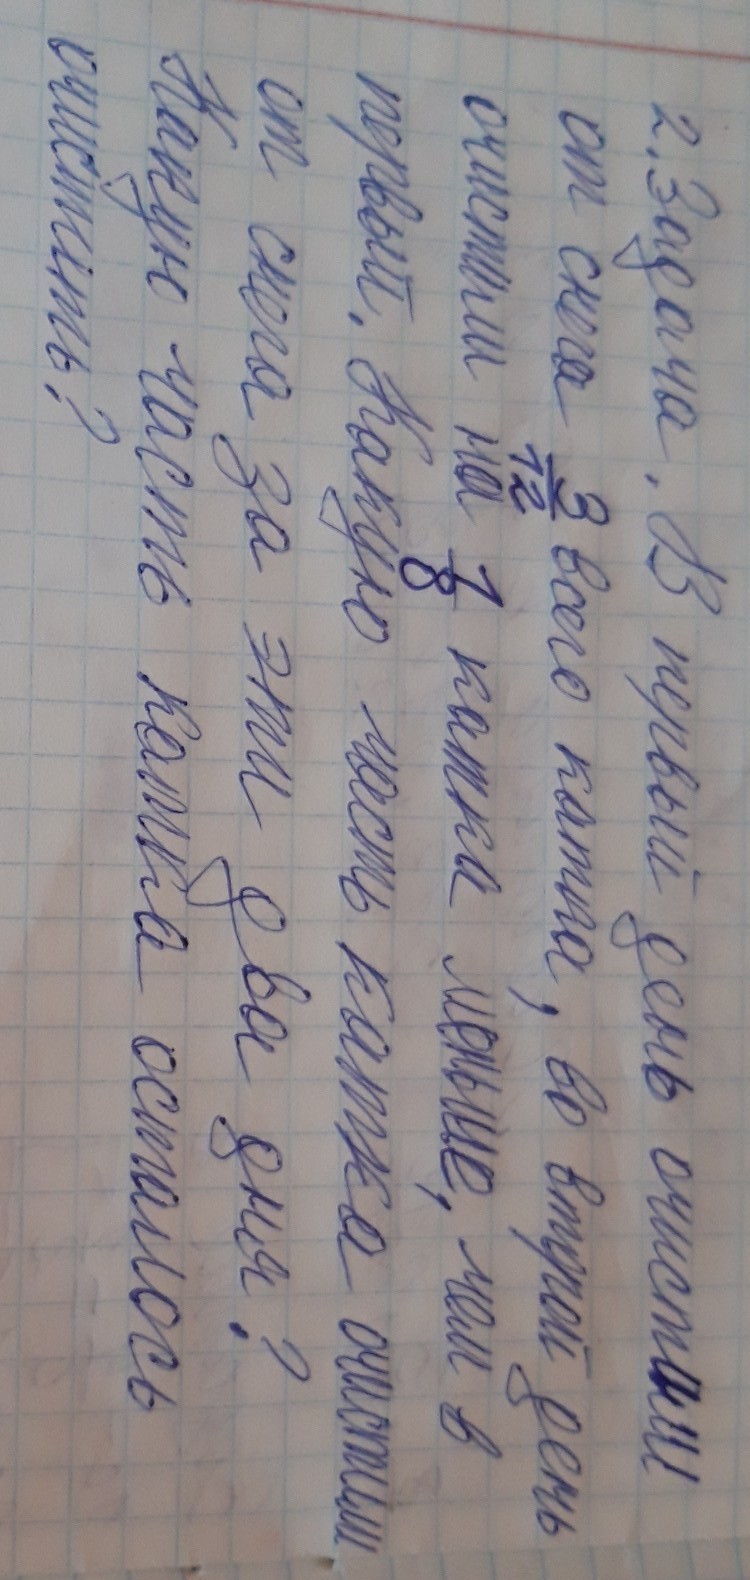 2. Задача. В первый день очистили
от снега 3/12 всего катка, во второй день
очистили на 1/8 катка меньше, чем в
первый. Какую часть катка очистили
от снега за эти два дня?
Какую часть катка осталось
очистить?